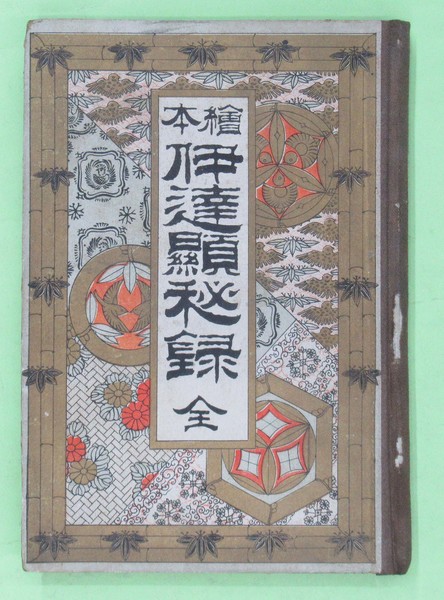 繪本
伊達顕秘録
全